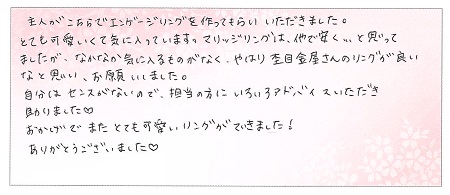 主人がこちらでエンゲージリングを作ってもらい いただきました。
とても可愛いくて気に入っています。マリッジリングは、他で安く、、と思って
ましたが、なかなか気に入るものがなく、やはり杢目金屋さんのリングが良い
なと思い、お願いしました。
自分はセンスがないので、担当の方にいろいろアドバイスいただき
助りました♡
おかげで またとても可愛いリングができました！
ありがとうございました♡